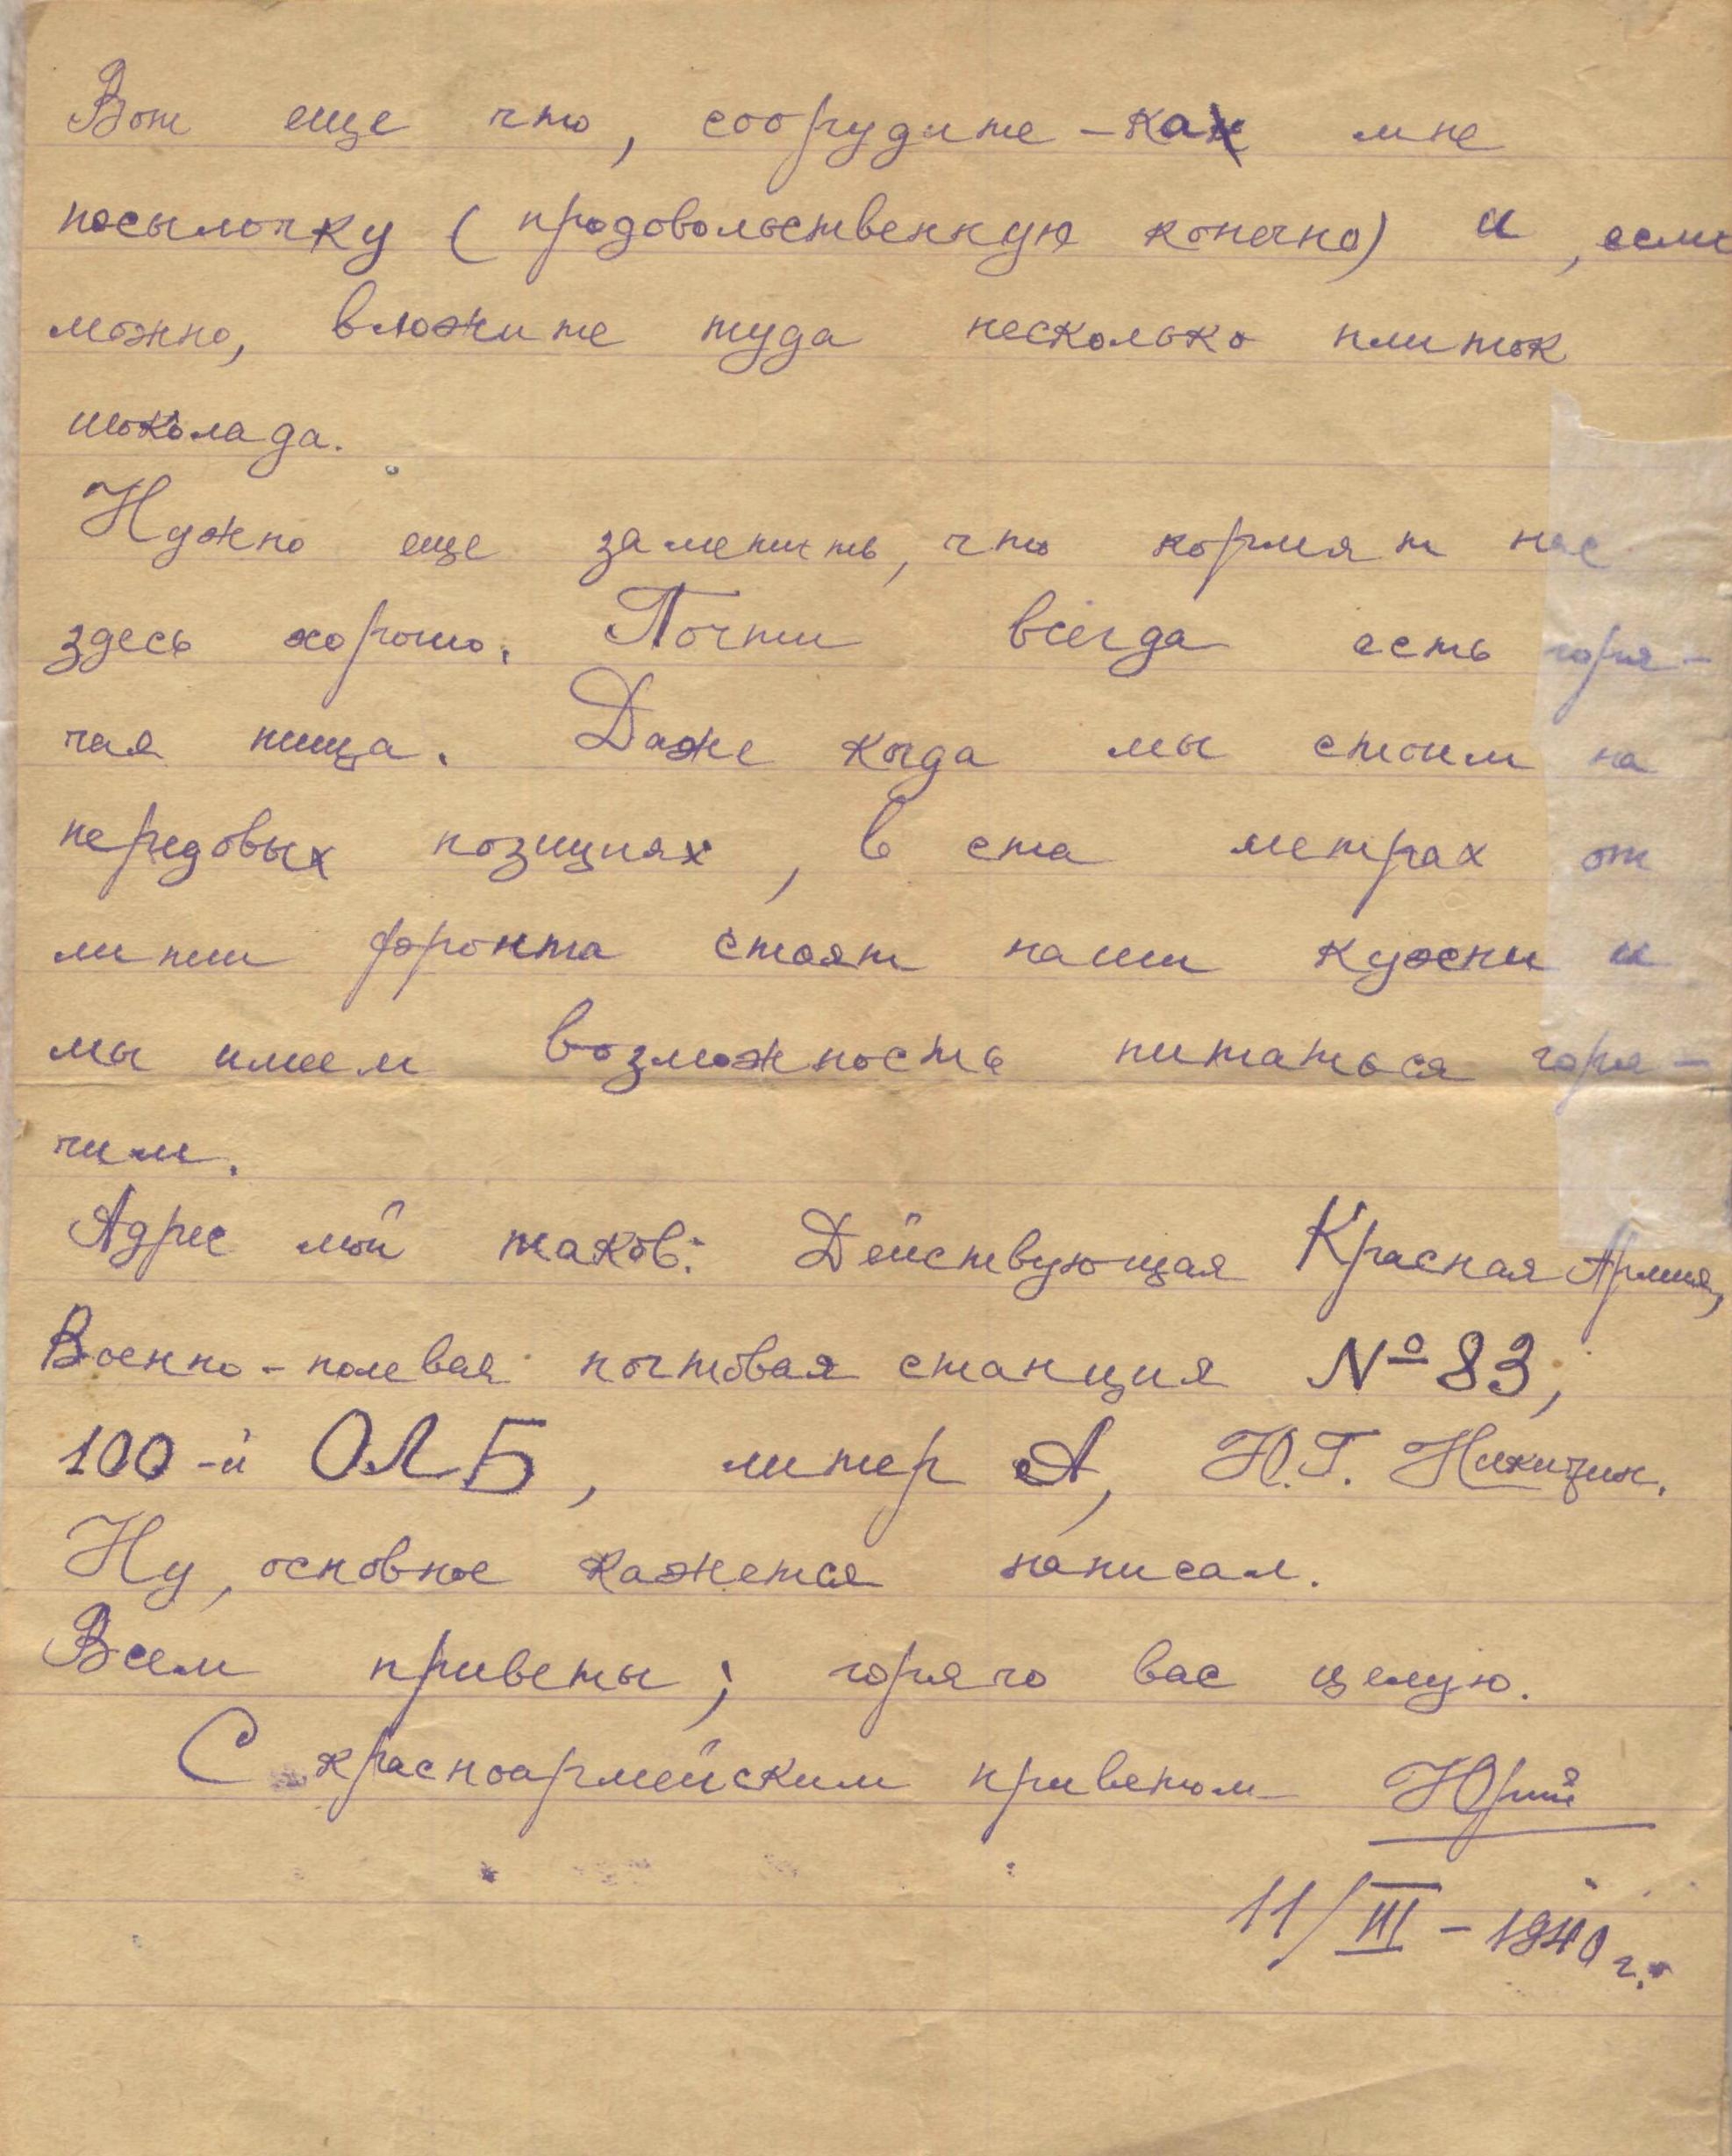 Вот еще что, соорудите-ка мне
посылочку (продовольственную конечно) и, если
можно, вложите туда несколько плиток
шоколада.
Нужно еще заметить, что кормят нас
здесь хорошо. Почти всегда есть горя-
чая пища. Даже когда мы стоим на
передовых позициях, в ста метрах от
линии фронта стоят наши кухни и
мы имеем возможность питаться горя-
чим.
Адрес мой таков: Действующая Красная Армия,
Военно-полевая почтовая станция № 83,
100-й ОЛБ, литер А, Ю.Г. Никитин.
Ну, основное кажется написал.
Всем приветы; горячо вас целую.
С красноармейским приветом Юрий
11/III - 1940 г.